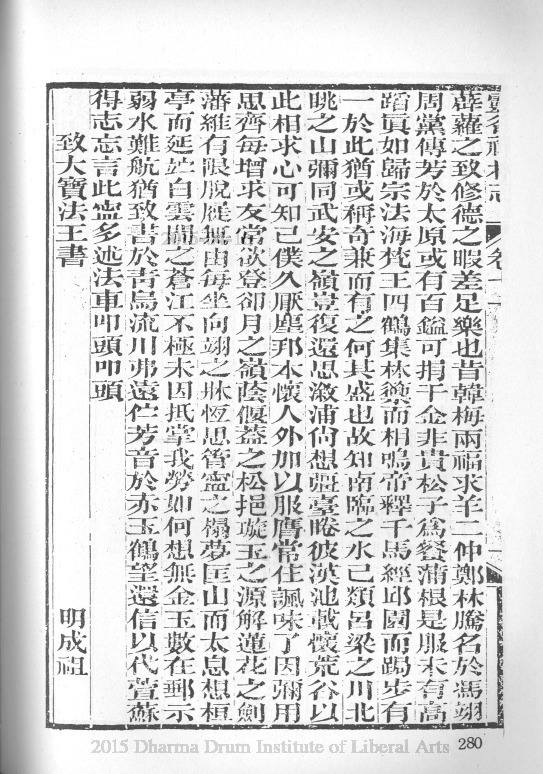 靈谷禪林志 卷十一
薜蘿之致修德之暇差足樂也昔韓梅兩福求羊二仲鄭林騰名於馮翊
周黨傳芳於太原或有百鎰可捐千金非貴松子為餐蒲根是服未有高
蹈眞如歸宗法海梵王四鶴集林籞而相鳴帝釋千馬經邱園而跼步有
一於此猶或稱奇兼而有之何其盛也故知南臨之水已類呂梁之川北
眺之山彌同武安之嶺豈復還思漵浦尚想彊臺睠彼漢池載懷荒谷以
此相求心可知已僕久厭塵邦本懷人外加以服膺常住諷味了因彌用
思齊每增求友常欲登卻月之嶺蔭偃蓋之松挹璇玉之源解蓮花之劍
藩維有限脫屣無由每坐向翊之牀恆思管寧之榻夢匡山而太息想桓
亭而延竚白雲閒之蒼江不極未因抵掌我勞如何想無金玉數在郵示
弱水難航猶致書於青鳥流川弗遠佇芳音於赤玉鶴望還信以代萱蘇
得志忘言此寧多述法車叩頭叩頭
致大寶法王書
明成祖
2015 Dharma Drum Institute of Liberal Arts
280